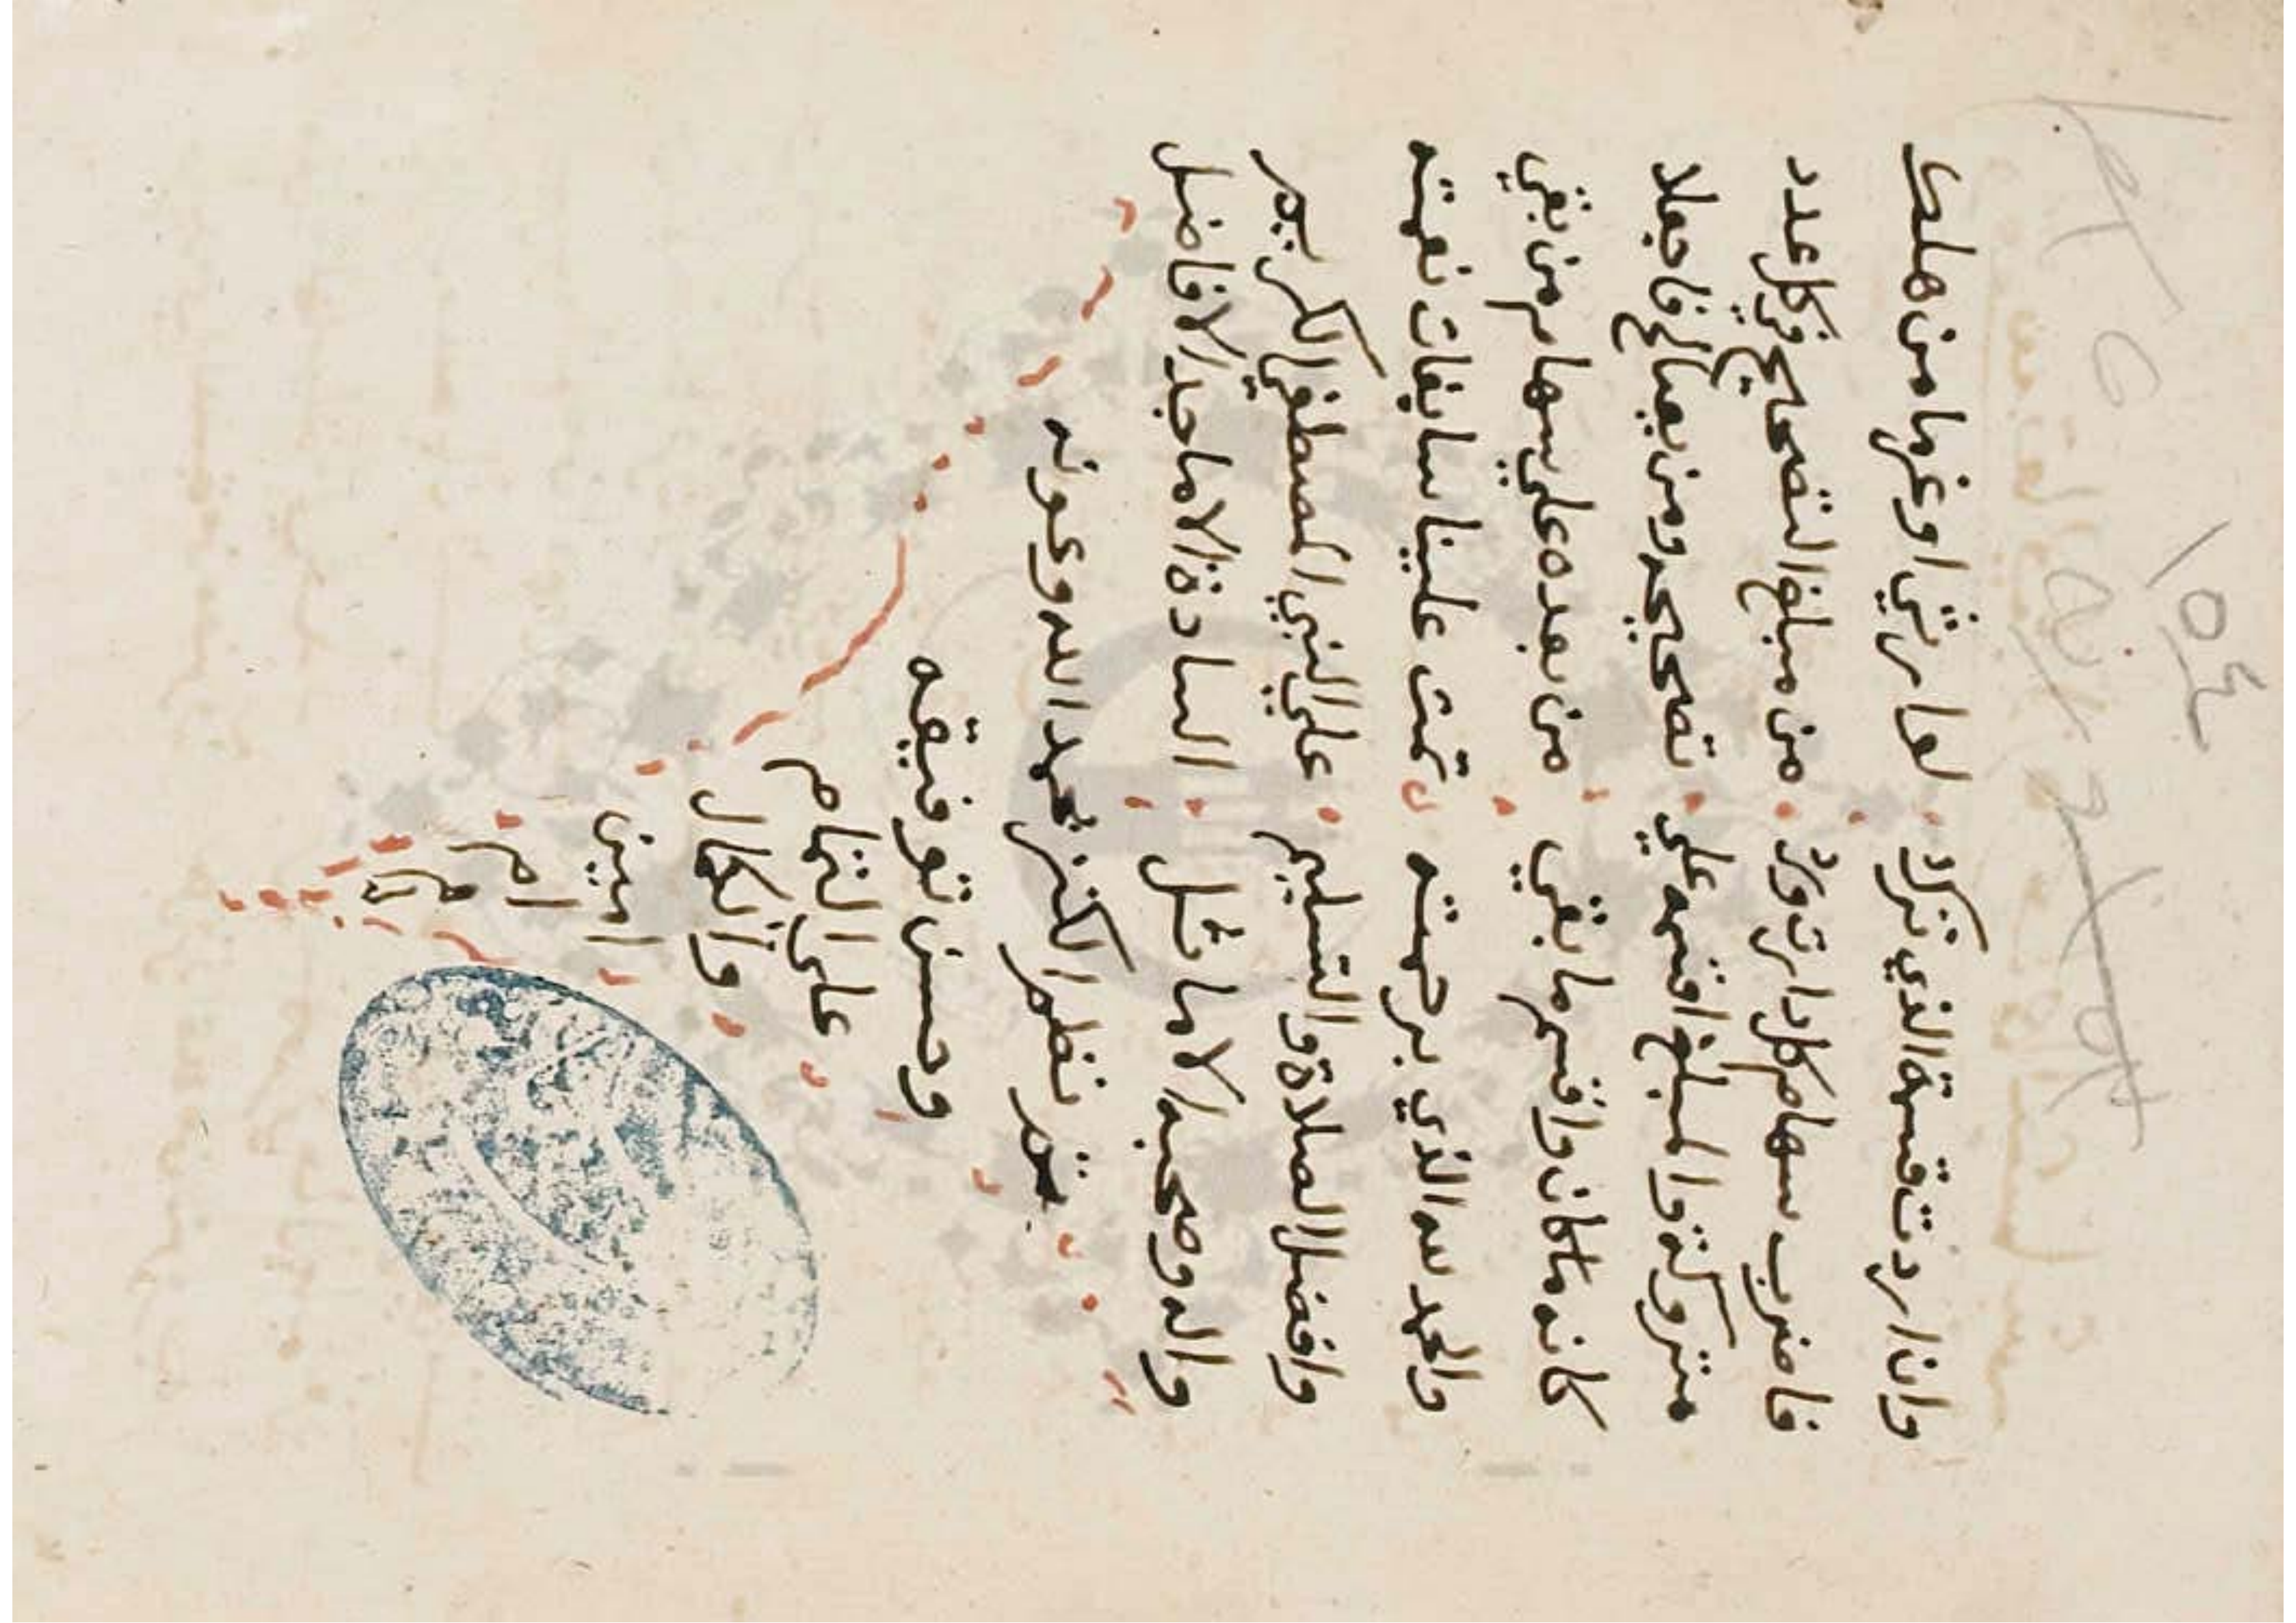 ١٥٤
وان اردت قسمة الذي ترك لوارثي او غرما من هلك
فاضرب سهام كل دارث ورد من مبلغ التصحيح في كل عدد
متروكة والمبلغ اقسمه على تصحيحه ومن يصالح فاجعلا
كانه ماكان واقسم ما بقي من بعده علي سهام من بقي
والحمد لله الذي برحمته تمت علينا سابغات نعمته
وافضل الصلاة والتسليم علي النبي المصطفي الكريم
واله وصحبه الاماثل السادة الاماجد الافاضل
تم نظم الكنز بحمد الله وعونه
وحسن توفيقه
على التمام
والكمال
امين
ام
م